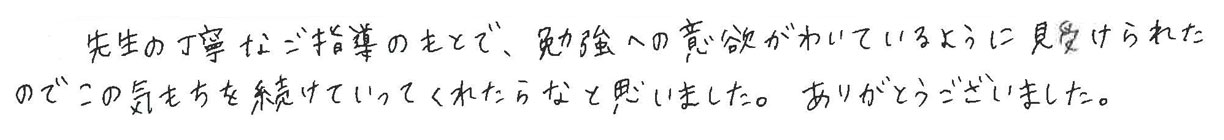 先生の丁寧なご指導のもとで、勉強への意欲がわいているように見受けられた
のでこの気もちを続けていってくれたらなと思いました。ありがとうございました。